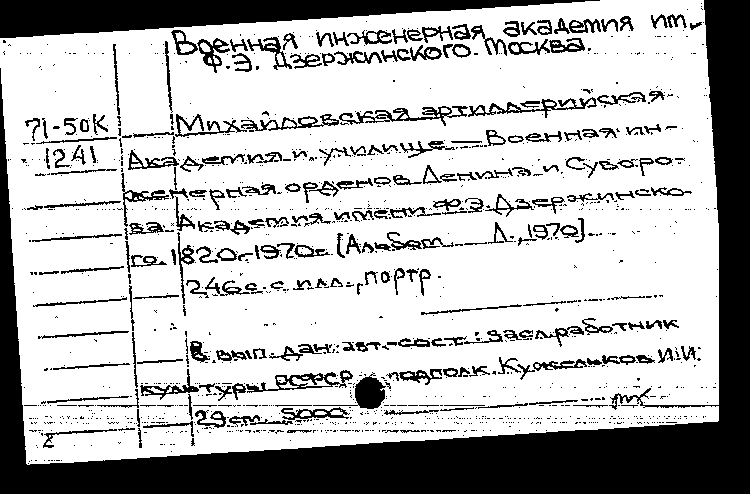 Военная инженерная академия им.
Ф.Э. Дзержинского. Москва.
71-50К
1241
Михайловская артиллерийская
Академия и училище — Военная ин-
женерная орденов Ленина и Суворо-
ва Академия имени Ф.Э. Дзержинско-
го. 1820-1970г. [Альбом Л., 1970].
246 с. с илл., портр.
В вып. дан: авт.-сост.: засл. работник
культуры РСФСР подполк. Кужельков И.И.
29 см. 5000